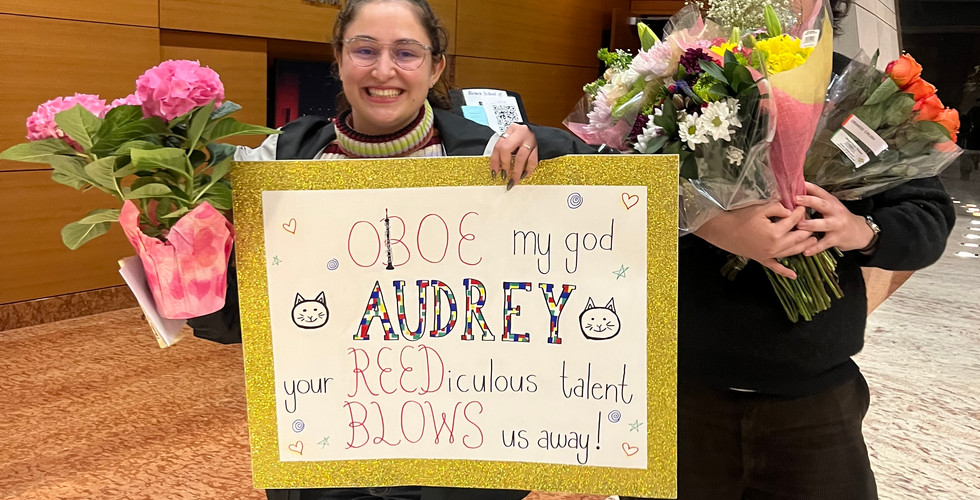 OBOE my god
AUDREY
your REEDiculous talent
BLOWS us away!